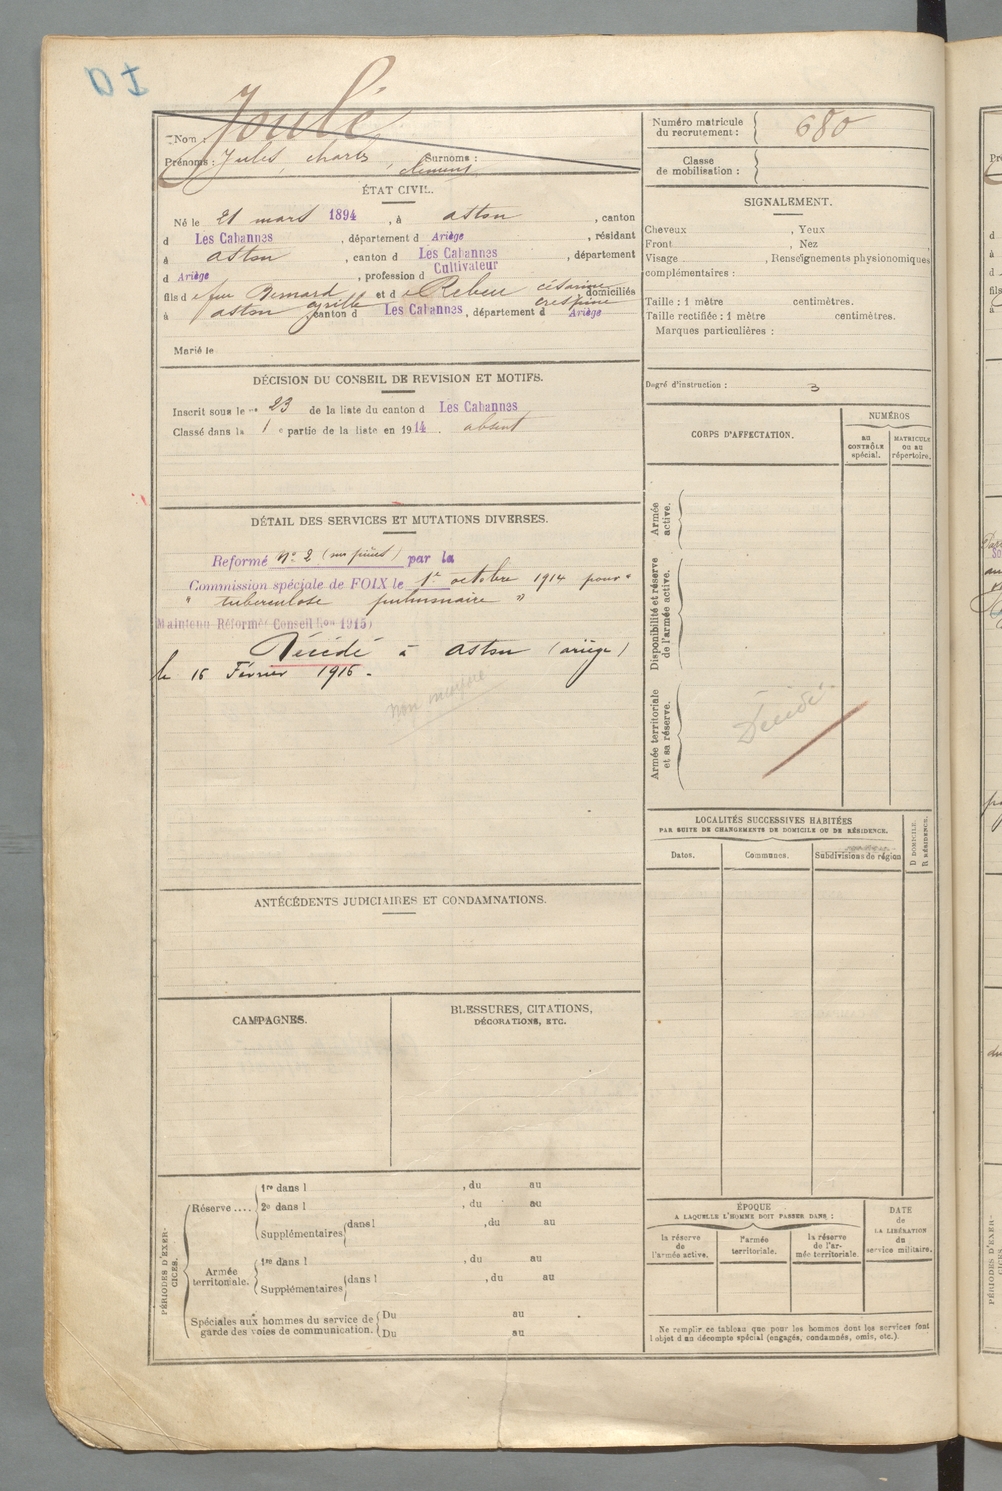 D I
Nom : Joulé
Prénoms : Jules, charles, clément Surnoms :
ÉTAT CIVIL.
Né le 21 mars 1894, à aston, canton
d Les Cabannes, département d Ariège, résidant
à aston, canton d Les Cabannes, département
d Ariège, profession d Cultivateur
fils d e feu Bernard cyrille et d e Rebeu césarine crespine domiciliés
à aston canton d Les Cabannes, département d Ariège
Marié le
DÉCISION DU CONSEIL DE REVISION ET MOTIFS.
Inscrit sous le n° 23 de la liste du canton d Les Cabannes
Classé dans la 1 e partie de la liste en 1914. absent
DÉTAIL DES SERVICES ET MUTATIONS DIVERSES.
Reformé N° 2 (sur pièces) par la
Commission spéciale de FOIX le 1er octobre 1914 pour "
" tuberculose pulmonaire "
Maintenu Réformé Conseil 1915)
Décédé à aston (ariège)
le 16 Février 1916.
Numéro matricule
du recrutement : 680
Classe
de mobilisation :
SIGNALEMENT.
Cheveux , Yeux
Front , Nez
Visage , Renseignements physionomiques
complémentaires :
Taille : 1 mètre centimètres.
Taille rectifiée : 1 mètre centimètres.
Marques particulières :
Degré d'instruction : 3
CORPS D'AFFECTATION.
NUMÉROS
au
CONTRÔLE
spécial.
MATRICULE
ou au
répertoire.
Armée
active.
Disponibilité et réserve
de l'armée active.
Armée territoriale
et sa réserve.
Décédé
LOCALITÉS SUCCESSIVES HABITÉES
PAR SUITE DE CHANGEMENTS DE DOMICILE OU DE RÉSIDENCE.
Dates.
Communes.
Subdivisions de région
D DOMICILE.
R RÉSIDENCE.
ANTÉCÉDENTS JUDICIAIRES ET CONDAMNATIONS.
CAMPAGNES.
BLESSURES, CITATIONS,
DÉCORATIONS, ETC.
PÉRIODES D'EXER-
CICES.
Réserve .... 1re dans l , du au
2e dans l , du au
Supplémentaires dans l , du au
Armée
territoriale. 1re dans l , du au
Supplémentaires dans l , du au
Spéciales aux hommes du service de
garde des voies de communication. Du au
Du au
ÉPOQUE
A LAQUELLE L'HOMME DOIT PASSER DANS :
la réserve
de
l'armée active.
l'armée
territoriale.
la réserve
de l'ar-
mée territoriale.
DATE
de
LA LIBÉRATION
du
service militaire.
Ne remplir ce tableau que pour les hommes dont les services font
l'objet d'un décompte spécial (engagés, condamnés, omis, etc.).